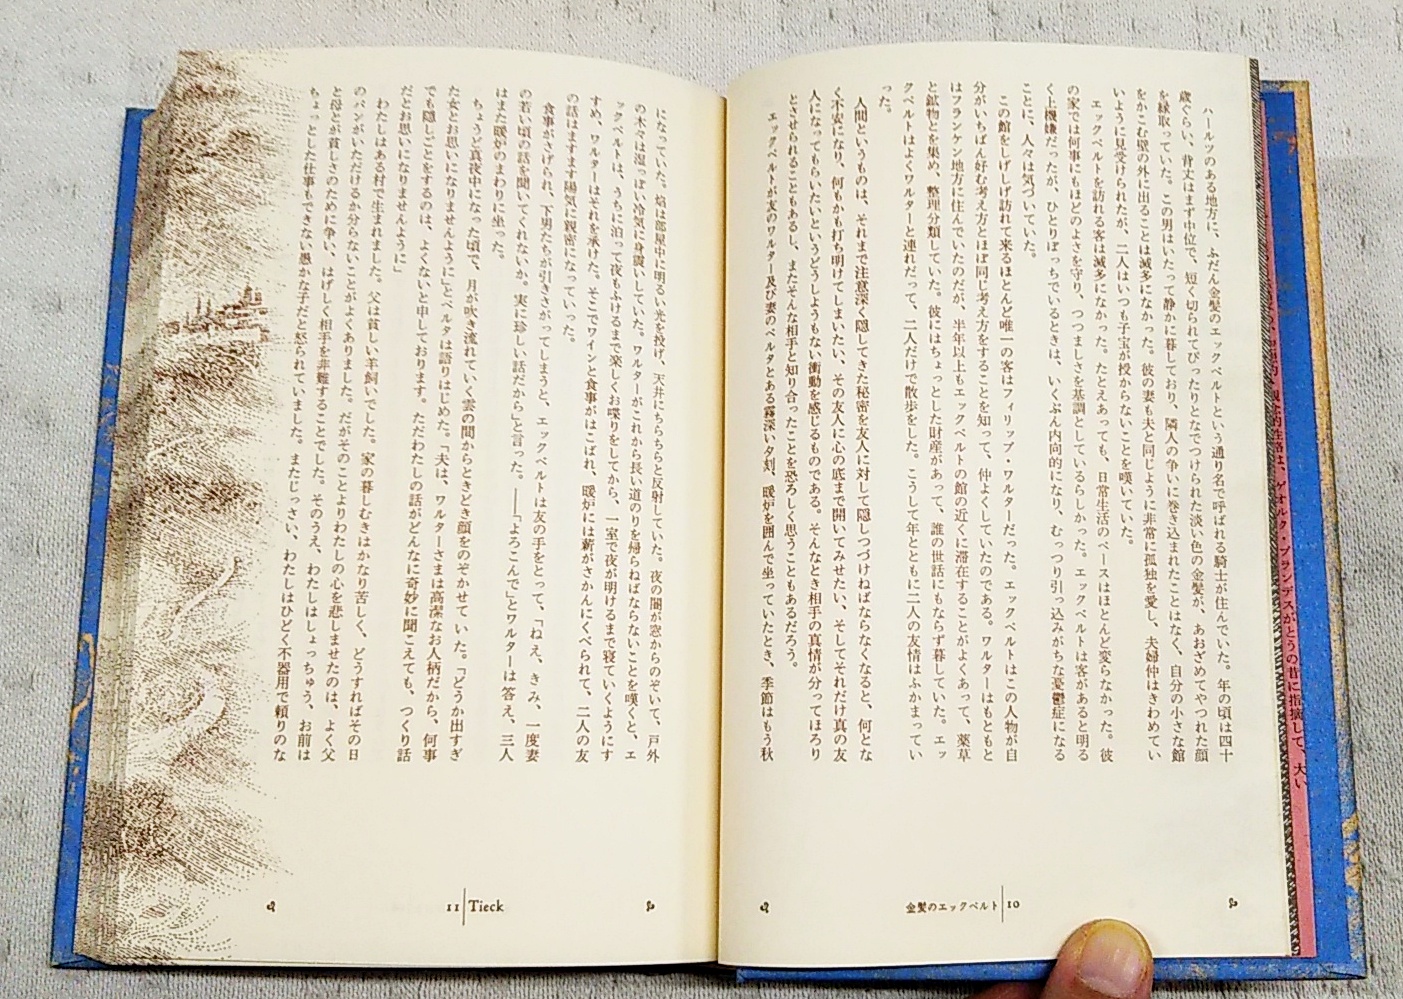 ハールツのある地方に、ふだん金髪のエックベルトという通り名で呼ばれる騎士が住んでいた。年の頃は四十
歳ぐらい、背丈はまず中位で、短く切られてぴったりとなでつけられた淡い色の金髪が、あおざめてやつれた顔
を縁取っていた。この男はいたって静かに暮しており、隣人の争いに巻き込まれたことはなく、自分の小さな館
をかこむ壁の外に出ることは滅多になかった。彼の妻も夫と同じように非常に孤独を愛し、夫婦仲はきわめてい
いように見受けられたが、二人はいつも子宝が授からないことを嘆いていた。
エックベルトを訪れる客は滅多になかった。たとえあっても、日常生活のペースはほとんど変らなかった。彼
の家では何事にもほどのよさを守り、つつましさを基調としているらしかった。エックベルトは客があると明る
く上機嫌だったが、ひとりぼっちでいるときは、いくぶん内向的になり、むっつり引っ込みがちな憂鬱症になる
ことに、人々は気づいていた。
この館をしげしげ訪れて来るほとんど唯一の客はフィリップ・ワルターだった。エックベルトはこの人物が自
分がいちばん好む考え方とほぼ同じ考え方をすることを知って、仲よくしていたのである。ワルターはもともと
はフランケン地方に住んでいたのだが、半年以上もエックベルトの館の近くに滞在することがよくあって、薬草
と鉱物とを集め、整理分類していた。彼にはちょっとした財産があって、誰の世話にもならず暮していた。エッ
クベルトはよくワルターと連れだって、二人だけで散歩をした。こうして年とともに二人の友情はふかまってい
った。
人間というものは、それまで注意深く隠してきた秘密を友人に対して隠しつづけねばならなくなると、何とな
く不安になり、何もかも打ち明けてしまいたい、その友人に心の底まで開いてみせたい、そしてそれだけ真の友
人になってもらいたいというどうしようもない衝動を感じるものである。そんなとき相手の真情が分ってほろり
とさせられることもあるし、またそんな相手と知り合ったことを恐ろしく思うこともあるだろう。
エックベルトが友のワルター及び妻のベルタとある霧深い夕刻、暖炉を囲んで坐っていたとき、季節はもう秋
金髪のエックベルト 10
になっていた。焔は部屋中に明るい光を投げ、天井にちらちらと反射していた。夜の闇が窓からのぞいて、戸外
の木々は湿っぽい冷気に身震いしていた。ワルターがこれから長い道のりを帰らねばならないことを嘆くと、エ
ックベルトは、うちに泊って夜もふけるまで楽しくお喋りをしてから、一室で夜が明けるまで寝ていくようにす
すめ、ワルターはそれを承けた。そこでワインと食事がはこばれ、暖炉には薪がさかんにくべられて、二人の友
の話はますます陽気に親密になっていった。
食事がさげられ、下男たちが引きさがってしまうと、エックベルトは友の手をとって、「ねえ、きみ、一度妻
の若い頃の話を聞いてくれないか。実に珍しい話だから」と言った。――「よろこんで」とワルターは答え、三人
はまた暖炉のまわりに坐った。
ちょうど真夜中になった頃で、月が吹き流れていく雲の間からときどき顔をのぞかせていた。「どうか出すぎ
た女とお思いになりませんように」とベルタは語りはじめた。「夫は、ワルターさまは高潔なお人柄だから、何事
でも隠しごとをするのは、よくないと申しております。ただわたしの話がどんなに奇妙に聞こえても、つくり話
だとお思いになりませんように」
わたしはある村で生まれました。父は貧しい羊飼いでした。家の暮しむきはかなり苦しく、どうすればその日
のパンがいただけるか分らないことがよくありました。だがそのことよりわたしの心を悲しませたのは、よく父
と母とが貧しさのために争い、はげしく相手を非難することでした。そのうえ、わたしはしょっちゅう、お前は
ちょっとした仕事もできない愚かな子だと怒られていました。またじっさい、わたしはひどく不器用で頼りのな
11 Tieck
的性格は、ゲオルク・ブランデスがとうの昔に指摘して、大い